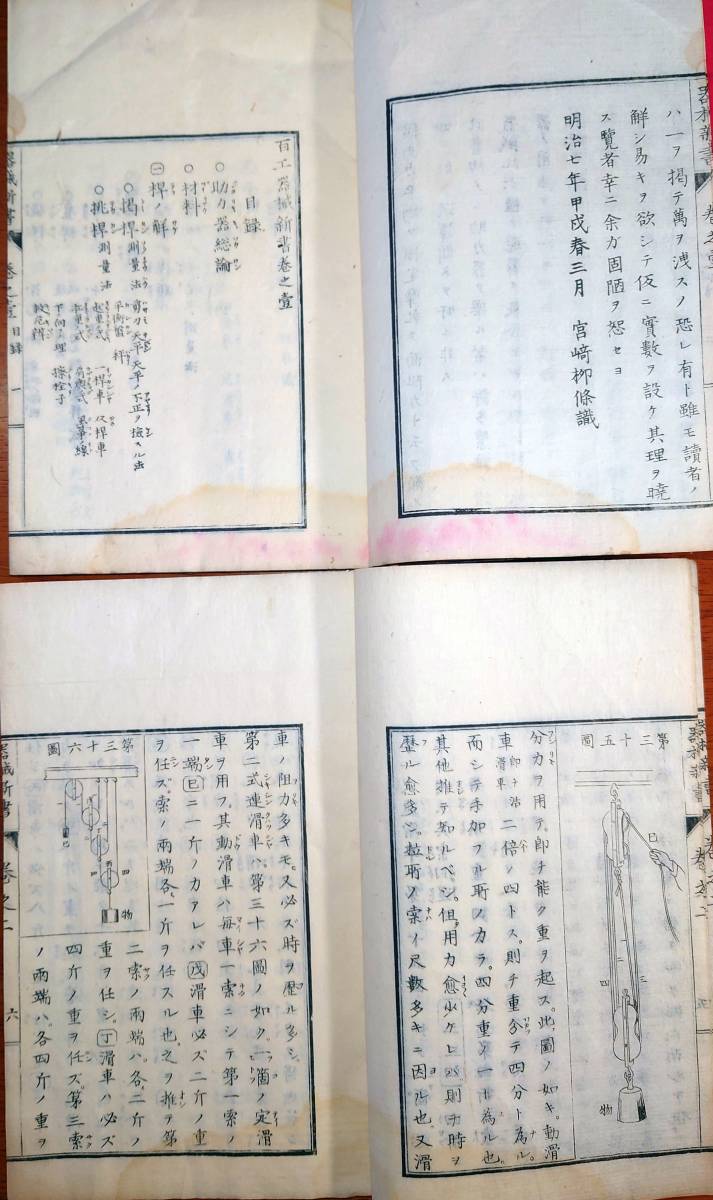 ハ一ヲ掲テ萬ヲ洩スノ恐レ有ト雖モ讀者ノ
解シ易キヲ欲シテ仮ニ實數ヲ設ケ其理ヲ曉
ス覽者幸ニ余カ固陋ヲ恕セヨ
明治七年甲戌春三月　宮﨑柳條識
百工器械新書卷之壹
目録
○助力器総論
○材料
一桿ノ解
○掲桿測量法
剪刀　天平　天平ノ不正ヲ檢スル法
平衡盤　秤
○挑桿測量法
起重式　一桿車　及桿車
器械新書　卷之壹　目録　一
器械新書　卷之二
第三十五圖
巳
四
三
物
分力ヲ用テ。即チ能ク重ヲ起ス。此圖ノ如キ。動滑
車即チ活滑車二倍ノ四トス。則チ重分テ四分ト為ル。
而シテ手加フル所ノ力ラ。四分重ノ一ト為ル也。
其他推テ知ルベシ。但用力愈少ケレバ則チ時ヲ
歴ル愈多シ。拉所ノ索イ尺數多キニ因ル也。又滑
車ノ阻力多キモ。又必ズ時ヲ歴ル多シ。
第二式連滑車ハ。第三十六圖ノ如ク。一箇ノ定滑
車ヲ用フ。其動滑車ハ毎車一索ニシテ第一索ノ
一端巳ニ一斤ノ力アレバ戊滑車必ズ二斤ノ重
ヲ任ズ。索ノ兩端各一斤ヲ任スル也。之ヲ推テ第
第三十六圖
物
二索ノ兩端ハ。各二斤ノ
重ヲ任シ。丁滑車ハ必ズ
四斤ノ重ヲ任ズ。第三索
ノ兩端ハ。各四斤ノ重ヲ
器械新書　卷之二　六